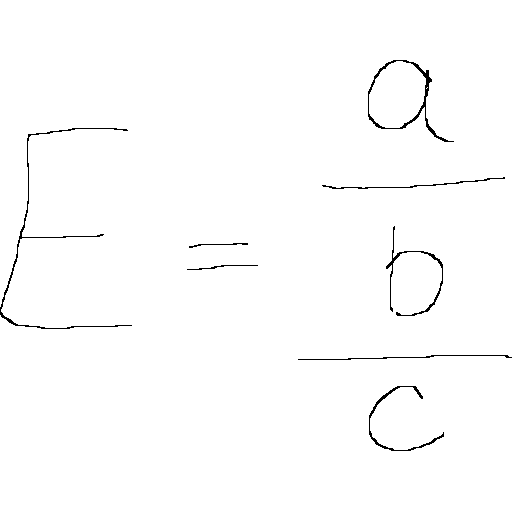 E = \frac{\frac{a}{b}}{c}